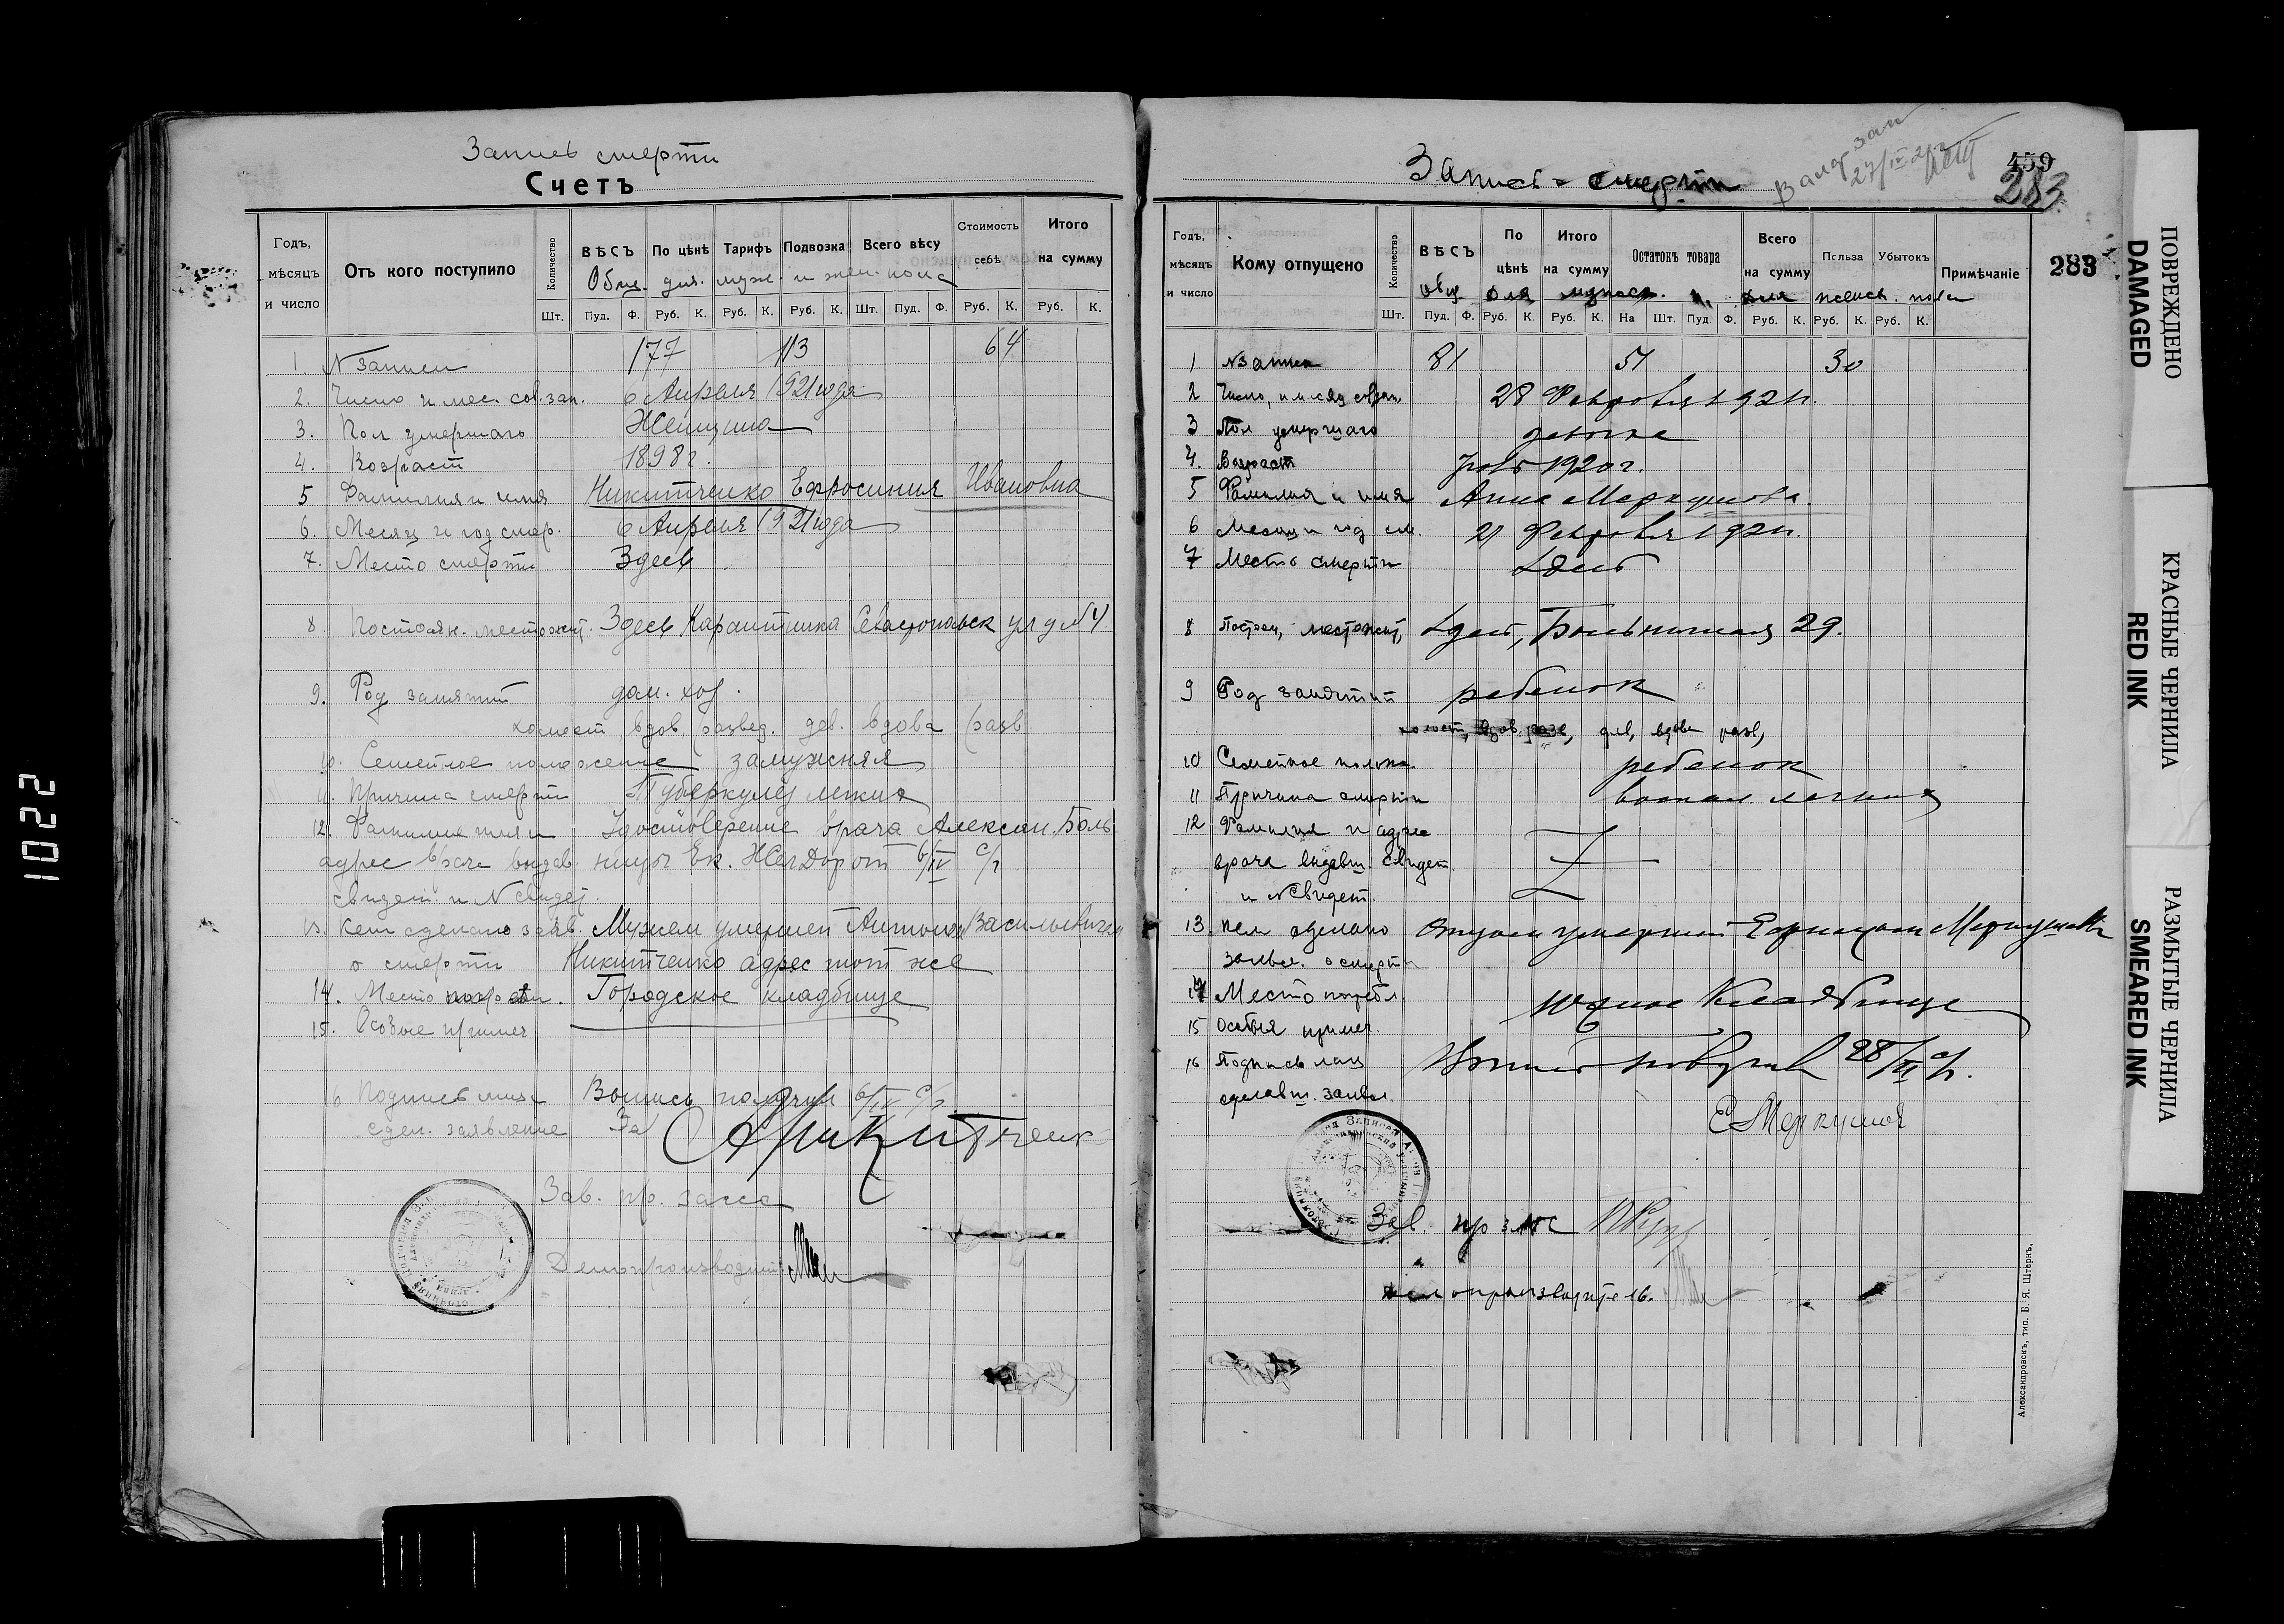 Запись смерти
Счетъ
Годъ, мѣсяцъ и число
Отъ кого поступило
Количество
ВѢСЪ
По цѣнѣ
Тарифъ
Подвозка
Всего вѣсу
Стоимость себѣ
Итого на сумму
Общ. для муж. и жен. пола
Шт. Пуд. Ф. Руб. К. Руб. К. Руб. К. Шт. Пуд. Ф. Руб. К. Руб. К.
1 N записи 177 113 64
2. Число и мес. сов. зап. 6 Апреля 1921 года
3. Пол умершаго Женщина
4. Возраст 1898 г.
5 Фамилия и имя Никитченко Ефросиния Ивановна
6. Месяц и год смер. 6 Апреля 1921 года
7. Место смерти Здесь
8 Постоян. местожит. Здесь Карантинка Севастопольск ул д N 4
9. Род занятий дом. хоз.
холост вдов. развед. дев. вдова разв
10. Семейное положение замужняя
11. Причина смерти Туберкулез легких
12. Фамилия имя и Удостоверение врача Алексан. Боль
адрес врача выдав. ницы Ек. Жел Дор от 6/IV с/г
свидет. и N свидет.
13. Кем сделано заяв. Мужем умершей Антоном Васильевичем
о смерти Никитченко адрес тот же
14. Место погребен. Городское кладбище
15. Особые примеч.
16 Подпись лица Выпись получил 6/IV с/г
сдел. заявление За АНикитченк
Зав. пр. загса
Делопроизводит.
Запись смерти
27/IV
459
283
Годъ, мѣсяцъ и число
Кому отпущено
Количество
ВѢСЪ
По цѣнѣ
Итого на сумму
Остатокъ товара
Всего на сумму
Польза
Убытокъ
Примѣчаніе
283
общ для мужск. и для женск. пола
Шт. Пуд. Ф. Руб. К. Руб. К. На Шт. Пуд. Ф. Руб. К. Руб. К. Руб. К.
1 N записи 81 51 30
2 Число, и месяц соверш. 28 Февраля 1921 г.
3 Пол умершаго девочка
4. Возраст 1920 г.
5 Фамилия и имя Анна Меркушова
6 Месяц и год см. 21 Февраля 1921 г.
7 Место смерти Здесь
8 Постоян, местожит, Здесь, Больничная 29.
9 Род занятий ребенок
холост, вдов. разв, дев, вдова разв,
10 Семейное полож. ребенок
11 Причина смерти воспал. легких
12 Фамилия и адрес
врача выдавш. свидет.
и N свидет.
13. Кем сделано Отцом умершей Меркушовым
заявл. о смерти
14 Место погребл. южное Кладбище
15 Особыя примеч.
16 Подпись лица Выпись получил 28/II с/г.
сделавш. заявл.
Е Меркушов
Зав. пр загс
делопроизводитель.
Александровскъ, тип. Б. Я. Штернъ.
ПОВРЕЖДЕНО
DAMAGED
КРАСНЫЕ ЧЕРНИЛА
RED INK
РАЗМЫТЫЕ ЧЕРНИЛА
SMEARED INK
1022